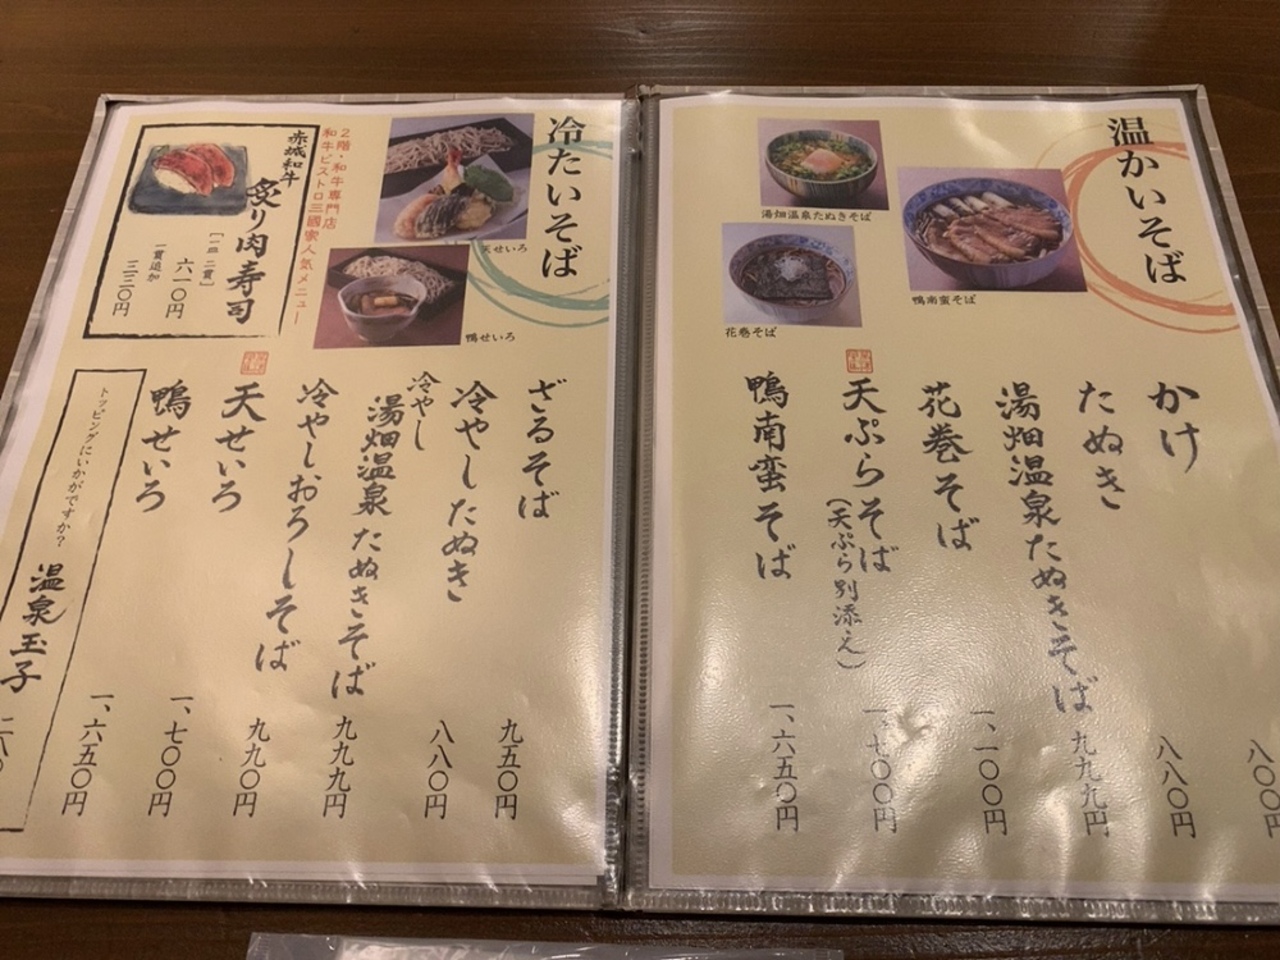 温かいそば
湯畑温泉たぬきそば
鴨南蛮そば
花巻そば
かけ
八〇〇円
たぬき
八八〇円
湯畑温泉たぬきそば
九九九円
花巻そば
一、一〇〇円
天ぷらそば
（天ぷら別添え）
一、七〇〇円
鴨南蛮そば
一、六五〇円
冷たいそば
天せいろ
鴨せいろ
2階・和牛専門店
和牛ビストロ三國家人気メニュー
赤城和牛
炙り肉寿司
［一皿 二貫］
六一〇円
一貫追加
三三〇円
ざるそば
九五〇円
冷やしたぬき
八八〇円
冷やし
湯畑温泉たぬきそば
九九九円
冷やしおろしそば
九九〇円
天せいろ
一、七〇〇円
鴨せいろ
一、六五〇円
トッピングにいかがですか？
温泉玉子